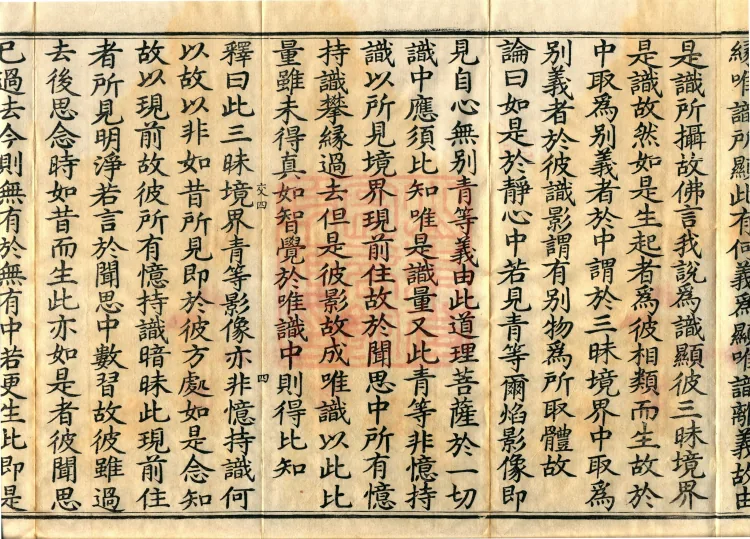 緣唯識所顯此有何義爲顯唯識離義故由
是識所攝故佛言我說爲識顯彼三昧境界
是識故然如是生起者爲彼相類而生故於
中取爲別義者於中謂於三昧境界中取爲
別義者於彼識影謂有別物爲所取體故
論曰如是於靜心中若見青等爾焰影像即
見自心無別青等義由此道理菩薩於一切
識中應須比知唯是識量又此青等非憶持
識以所見境界現前住故於聞思中所有憶
持識攀緣過去但是彼影故成唯識以此比
量雖未得真如智覺於唯識中則得比知
交四 四
釋曰此三昧境界青等影像亦非憶持識何
以故以非如昔所見即於彼方處如是念知
故以現前故彼所有憶持識暗昧此現前住
者所見明淨若言於聞思中數習故彼雖過
去後思念時如昔而生此亦如是者彼聞思
已過去今則無有於無有中若更生此即是